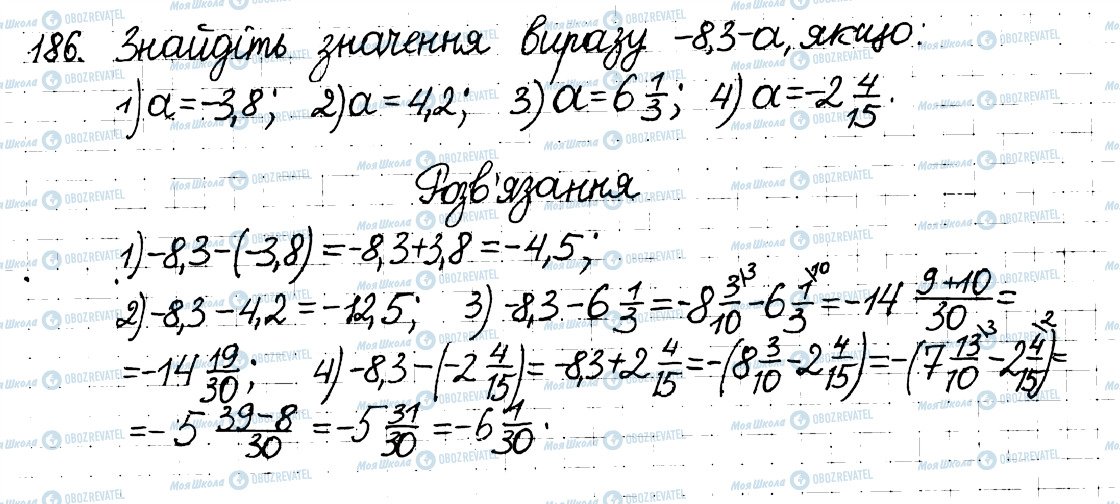 186. Знайдіть значення виразу -8,3-a, якщо:
1) a=-3,8; 2) a=4,2; 3) a=6 1/3; 4) a=-2 4/15.
Розв'язання
1) -8,3-(-3,8)=-8,3+3,8=-4,5;
2) -8,3-4,2=-12,5; 3) -8,3-6 1/3=-8 3/10 \3 -6 1/3 \10 =-14 (9+10)/30=
=-14 19/30; 4) -8,3-(-2 4/15)=-8,3+2 4/15=-(8 3/10-2 4/15)=-(7 13/10 \3 -2 4/15 \2)=
=-5 (39-8)/30=-5 31/30=-6 1/30.